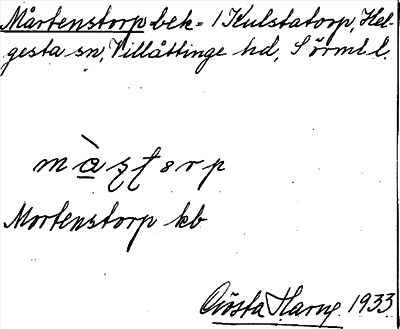 Mårtenstorp bek = / Kulstatorp, Hel-
gesta sn, Villåttinge hd, Sörml l.
Mortenstorp kb
Gösta Harne. 1933